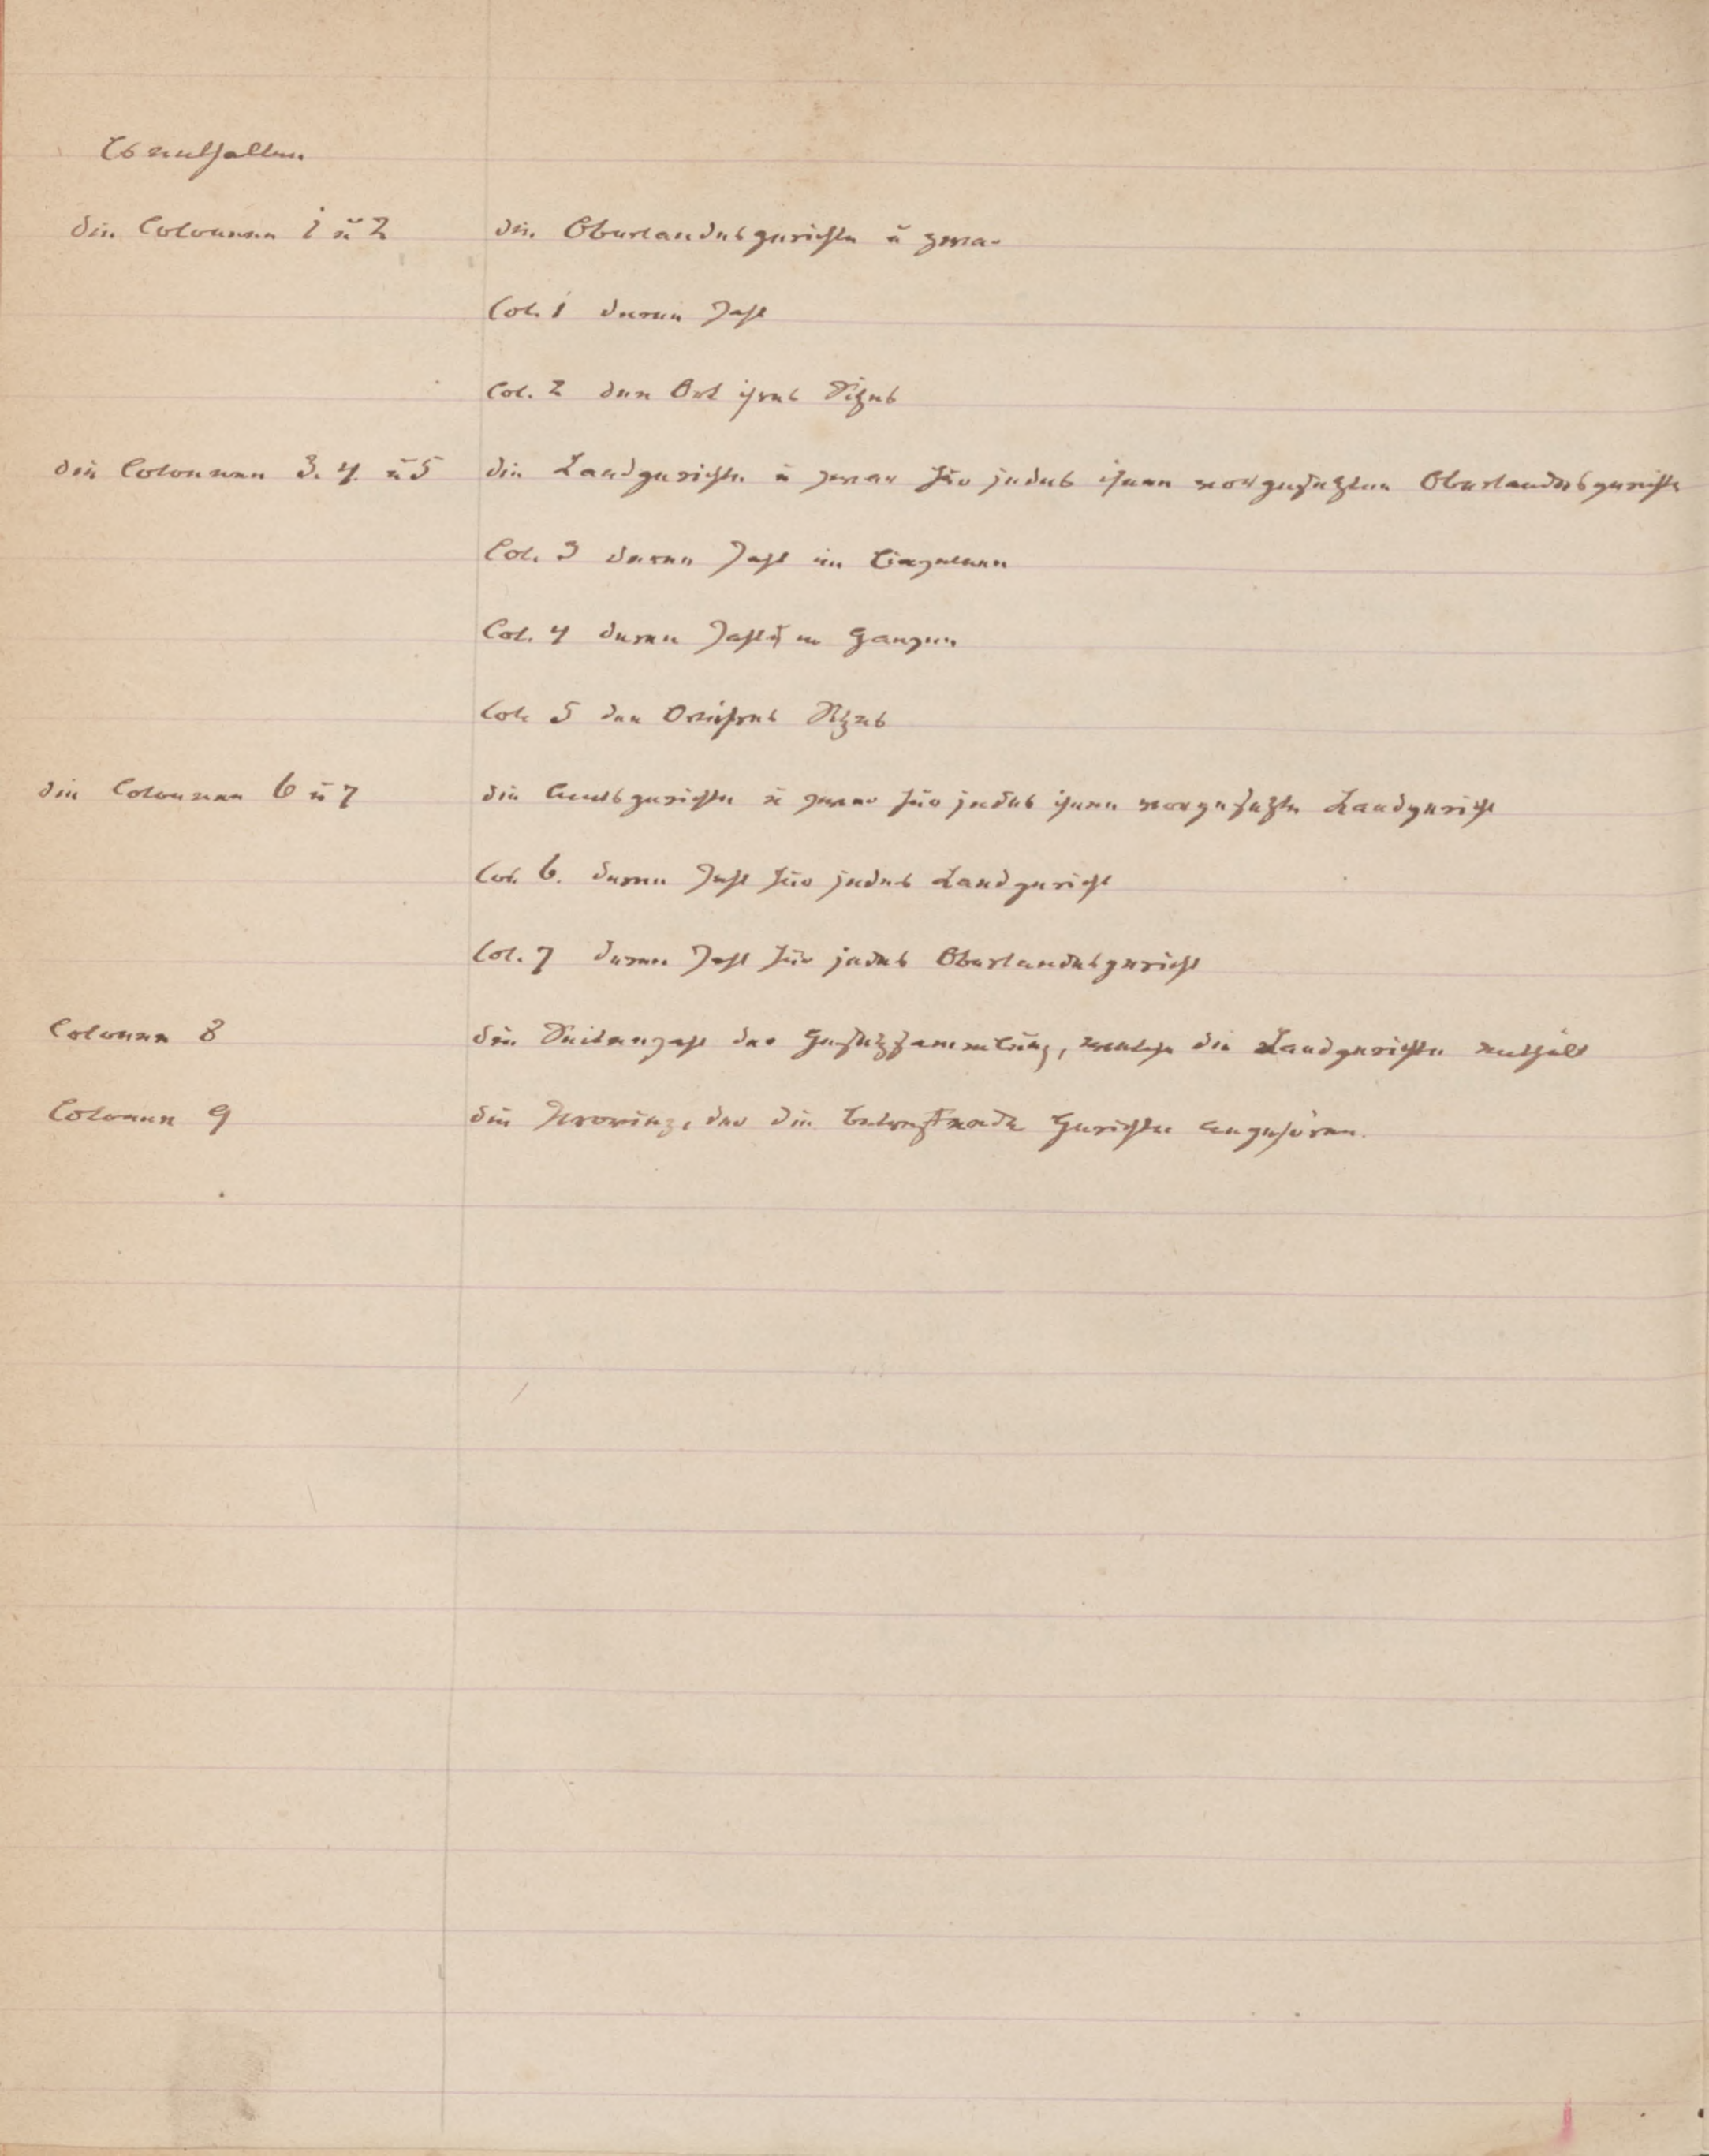 Es enthalten
die Colonnen 1 u 2 die Oberlandesgerichte u zwar
Col. 1 deren Zahl
Col. 2 den Ort ihres Sitzes
die Colonnen 3. 4. u 5 die Landgerichte u zwar für jedes ihnen vorgesetzten Oberlandesgerichte
Col. 3 deren Zahl im Einzelnen
Col. 4 deren Zahl im Ganzen
Col. 5 den Ort ihres Sitzes
die Colonnen 6 u 7 die Amtsgerichte u zwar für jedes ihnen vorgesetzte Landgericht
Col. 6. deren Zahl für jedes Landgericht
Col. 7 deren Zahl für jedes Oberlandesgericht
Colonne 8 die Seitenzahl der Gesetzsammlung, welche die Landgerichte enthält
Colonne 9 die Provinz, der die betreffende Gerichte angehören.